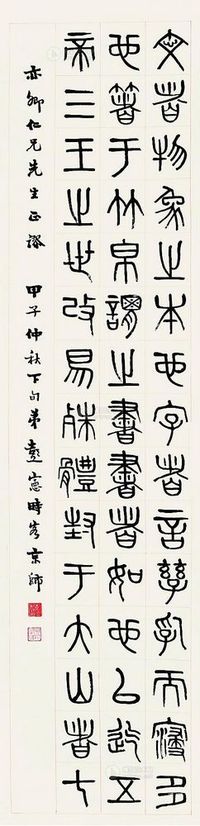 文者物象之本也字者言孳乳而寖多
也著于竹帛謂之書書者如也以迄五
帝三王之世改易殊體封于大山者七
亦卿仁兄先生正謬 甲子仲秋下旬弟 時客京師